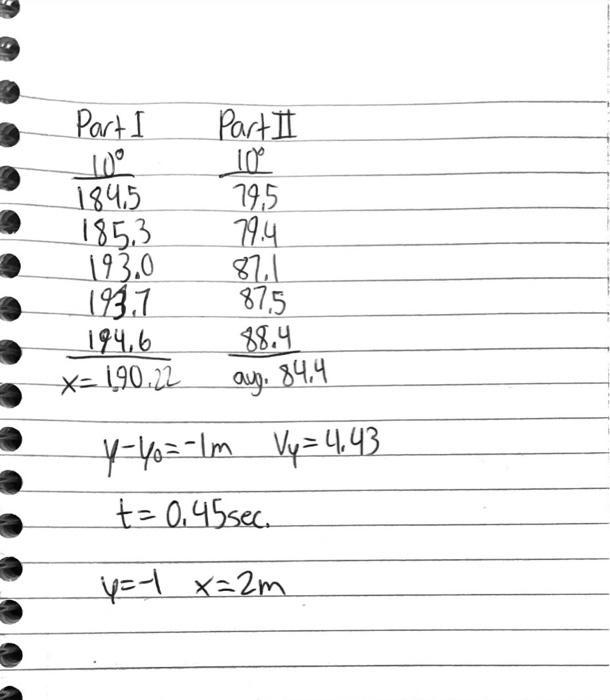 Part I Part II
10° 10°
184.5 79.5
185.3 79.4
193.0 87.1
193.7 87.5
194.6 88.4
x = 190.22 avg. 84.4
y-y₀=-1m Vy=4.43
t=0.45sec.
y=-1 x=2m